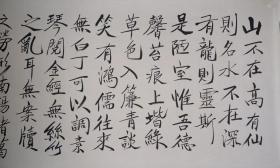 山不在高有仙
則名水不在深
有龍則靈斯
是陋室惟吾德
馨苔痕上堦綠
草色入簾青談
笑有鴻儒往來
無白丁可以調素
琴閱金經無絲竹
之亂耳無案牘
之勞形南陽諸葛